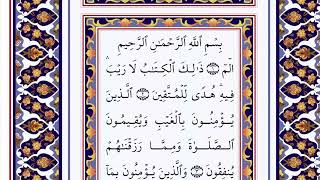 بِسْمِ ٱللَّهِ ٱلرَّحْمَـٰنِ ٱلرَّحِيمِ
الٓمٓ ۝ ذَٰلِكَ ٱلْكِتَـٰبُ لَا رَيْبَ ۛ
فِيهِ ۛ هُدًى لِّلْمُتَّقِينَ ۝ ٱلَّذِينَ
يُؤْمِنُونَ بِٱلْغَيْبِ وَيُقِيمُونَ
ٱلصَّلَوٰةَ وَمِمَّا رَزَقْنَـٰهُمْ
يُنفِقُونَ ۝ وَٱلَّذِينَ يُؤْمِنُونَ بِمَآ